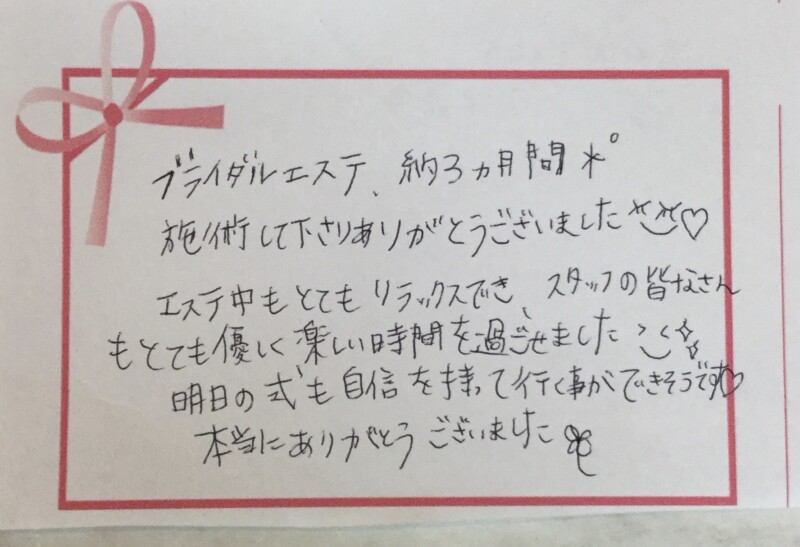 ブライダルエステ、約3ヵ月間*°
施術して下さりありがとうございました♡
エステ中もとてもリラックスでき、スタッフの皆なさん
もとても優しく楽しい時間を過ごせました
明日の式も自信を持って行く事ができそうです♡
本当にありがとうございました